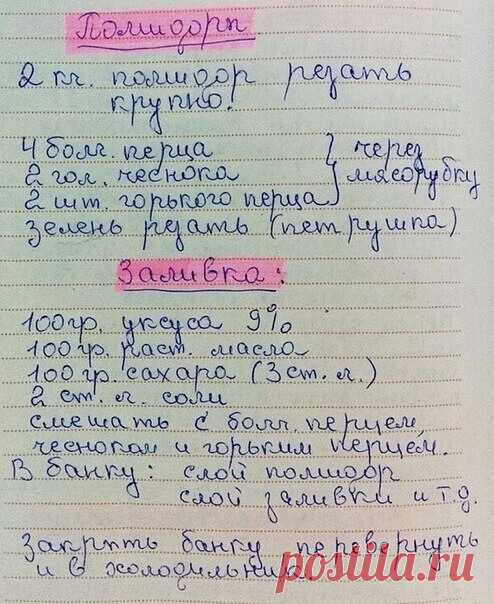 Помидоры
2 кг. помидор резать
крупно!
4 болг. перца
2 гол. чеснока
2 шт. горького перца
через
мясорубку
зелень резать (петрушка)
Заливка:
100гр. уксуса 9%
100гр. раст. масла
100гр. сахара (3 ст. л.)
2 ст. л. соли
смешать с болг. перцем,
чесноком и горьким перцем.
В банку: слой помидор
слой заливки и т.д.
Закрыть банку перевернуть
и в холодильник.
posila.ru